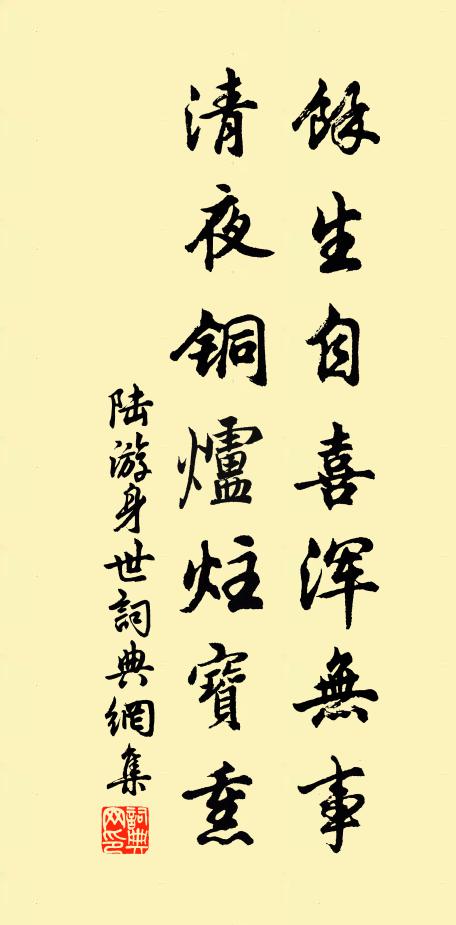 餘生自喜渾無事
清夜铜爐炷寶熏
陆游身世詞典網集
詞典网印